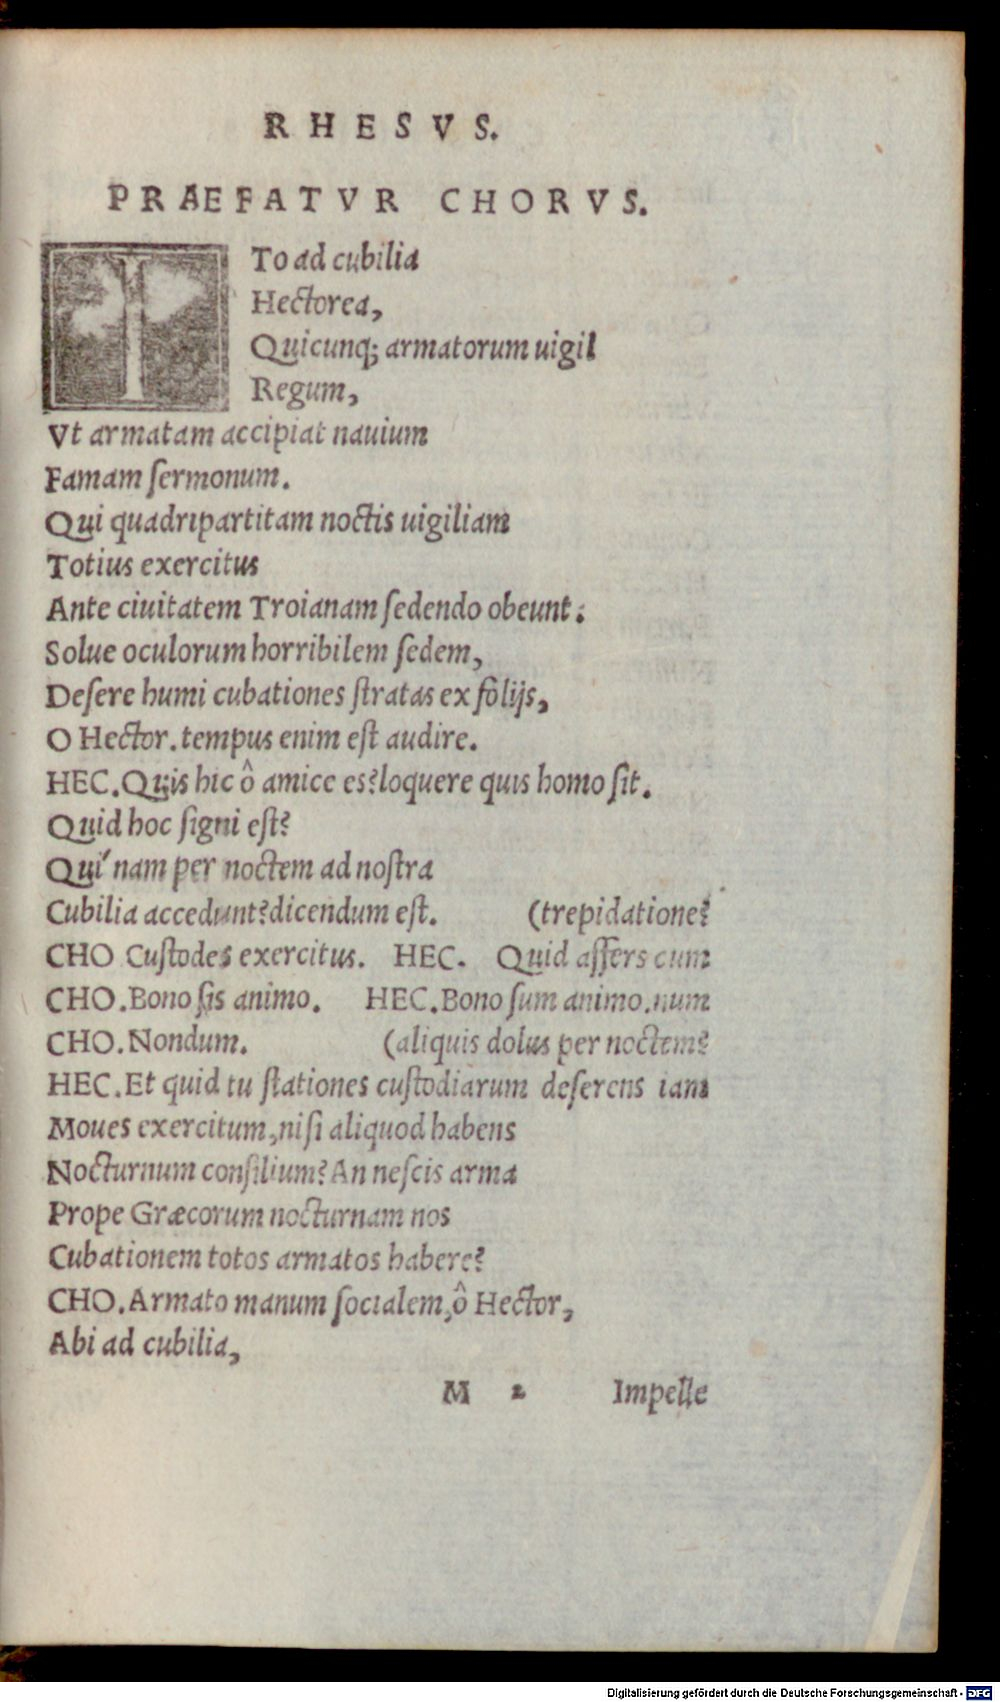 RHESVS.
PRAEFATVR CHORVS.
ITo ad cubilia
Hectorea,
Quicunq; armatorum uigil
Regum,
Vt armatam accipiat nauium
Famam ſermonum.
Qui quadripartitam noctis uigiliam
Totius exercitus
Ante ciuitatem Troianam ſedendo obeunt:
Solue oculorum horribilem ſedem,
Deſere humi cubationes ſtratas ex fòlijs,
O Hector. tempus enim eſt audire.
HEC. Quis hic ô amice es? loquere quis homo ſit.
Quid hoc ſigni eſt?
Quí nam per noctem ad noſtra
Cubilia accedunt? dicendum eſt. (trepidatione?
CHO Cuſtodes exercitus. HEC. Quid affers cum
CHO. Bono ſis animo. HEC. Bono ſum animo. num
CHO. Nondum. (aliquis dolus per noctem?
HEC. Et quid tu ſtationes cuſtodiarum deſerens iam
Moues exercitum, niſi aliquod habens
Nocturnum conſilium? An neſcis arma
Prope Græcorum nocturnam nos
Cubationem totos armatos habere?
CHO. Armato manum ſocialem, ô Hector,
Abi ad cubilia,
M 2 Impelle
Digitalisierung gefördert durch die Deutsche Forschungsgemeinschaft - DFG